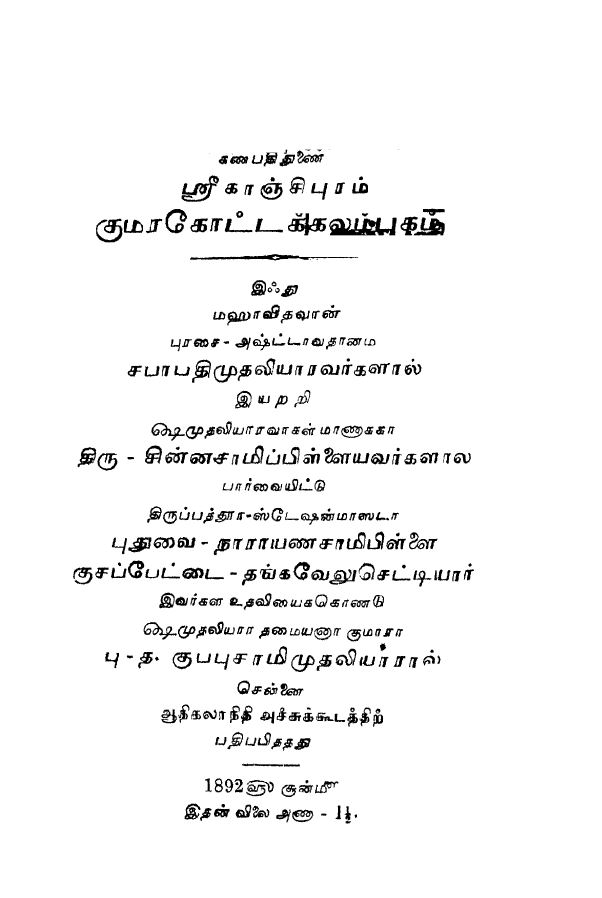 கணபதிதுணை
ஸ்ரீகாஞ்சிபுரம்
குமரகோட்டக்கலம்பகம்
இஃது
மஹாவிதவான்
புரசை - அஷ்ட்டாவதானம
சபாபதிமுதலியாரவர்களால்
இயறறி
௸முதலியாரவாகள் மாணாககா
திரு - சின்னசாமிப்பிள்ளையவர்களால
பார்வையிட்டு
திருப்பத்தூா-ஸ்டேஷன்மாஸடா
புதுவை - நாராயணசாமிபிள்ளை
குசப்பேட்டை - தங்கவேலுசெட்டியார்
இவர்கள உதவியைககொணடு
௸முதலியாா தமையனாா குமாரா
பு - த. குபபுசாமிமுதலியார்ரால்
சென்னை
ஆதிகலாநிதி அச்சுக்கூடத்திற்
பதிபபிதததது
1892௵ சூன்௴
இதன் விலை அணா - 1½.